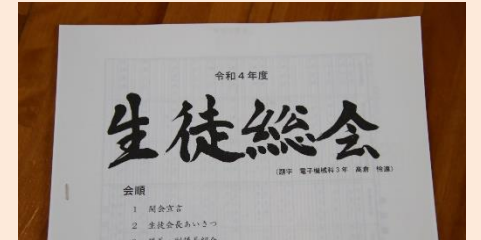 令和4年度
生徒総会
(題字 電子機械科3年 高倉
会順
1 開会宣言
2 生徒会長あいさつ